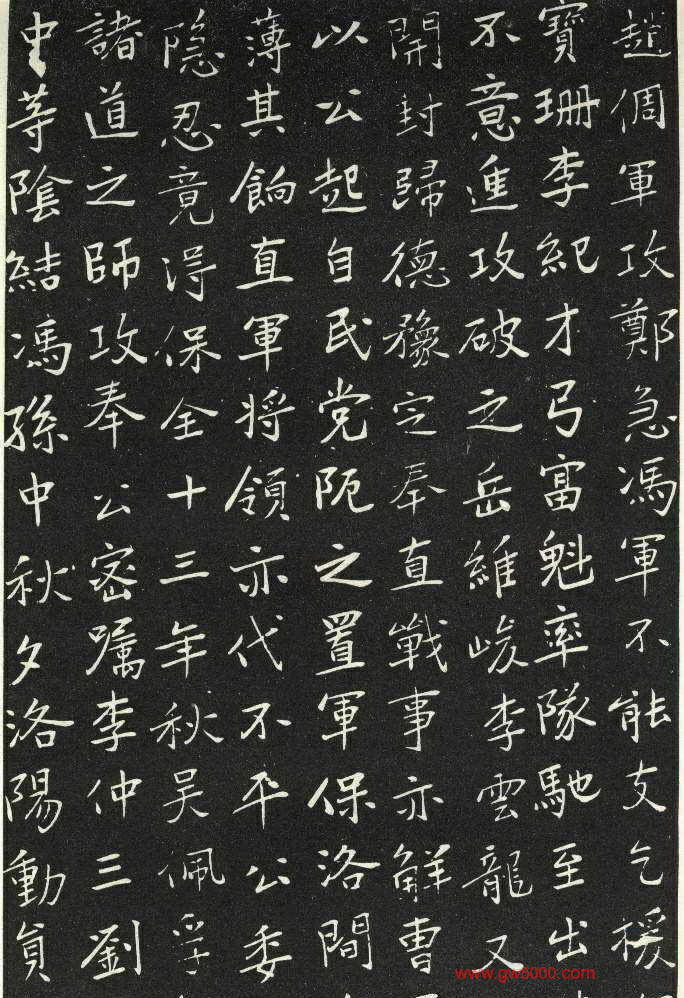 趙倜軍攻鄭急馮軍不能支乞援
寶珊李紀才弓富魁率隊馳至出
不意進攻破之岳維峻李雲龍又
開封歸德豫定奉直戰事亦解曹
以公起自民党阨之置軍保洛間
薄其餉直軍将領亦代不平公委
隐忍竟淂保全十三年秋吴佩孚
諸道之師攻奉公密属李仲三劉
中等陰結馮孫中秋夕洛陽動員
www.gw8000.com